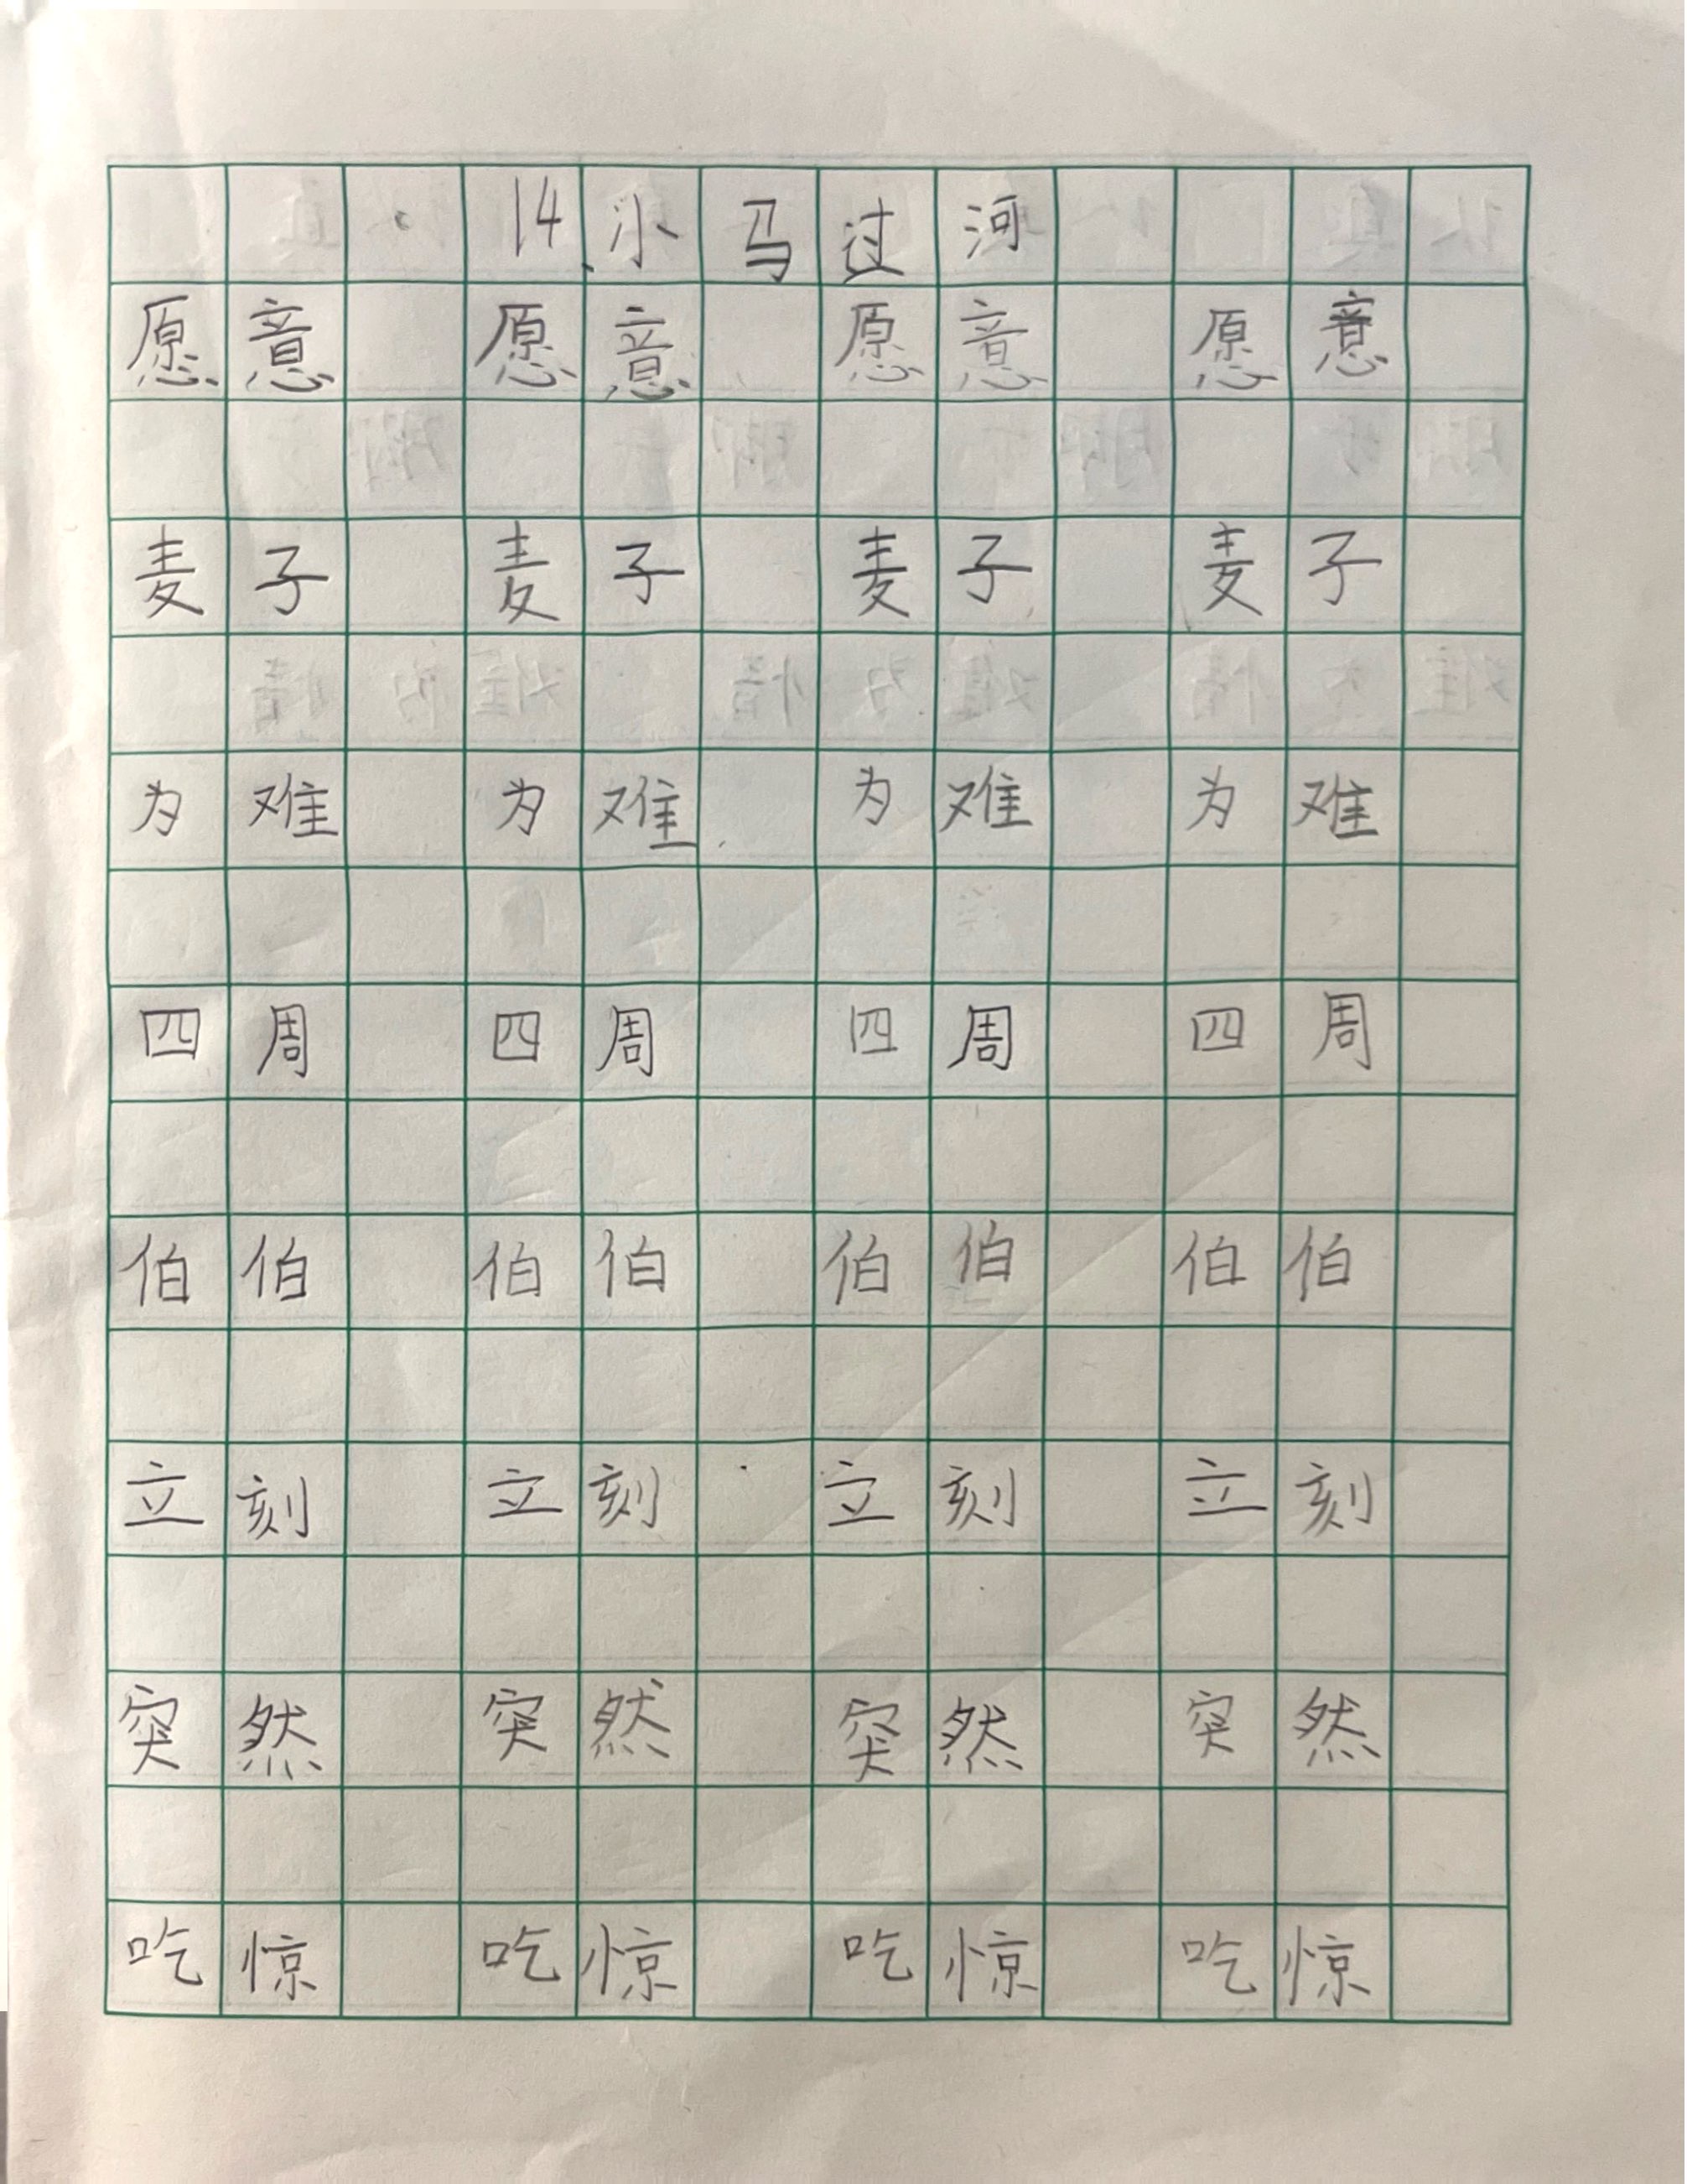 14.小马过河
愿意 愿意 愿意 愿意
麦子 麦子 麦子 麦子
为难 为难 为难 为难
四周 四周 四周 四周
伯伯 伯伯 伯伯 伯伯
立刻 立刻 立刻 立刻
突然 突然 突然 突然
吃惊 吃惊 吃惊 吃惊